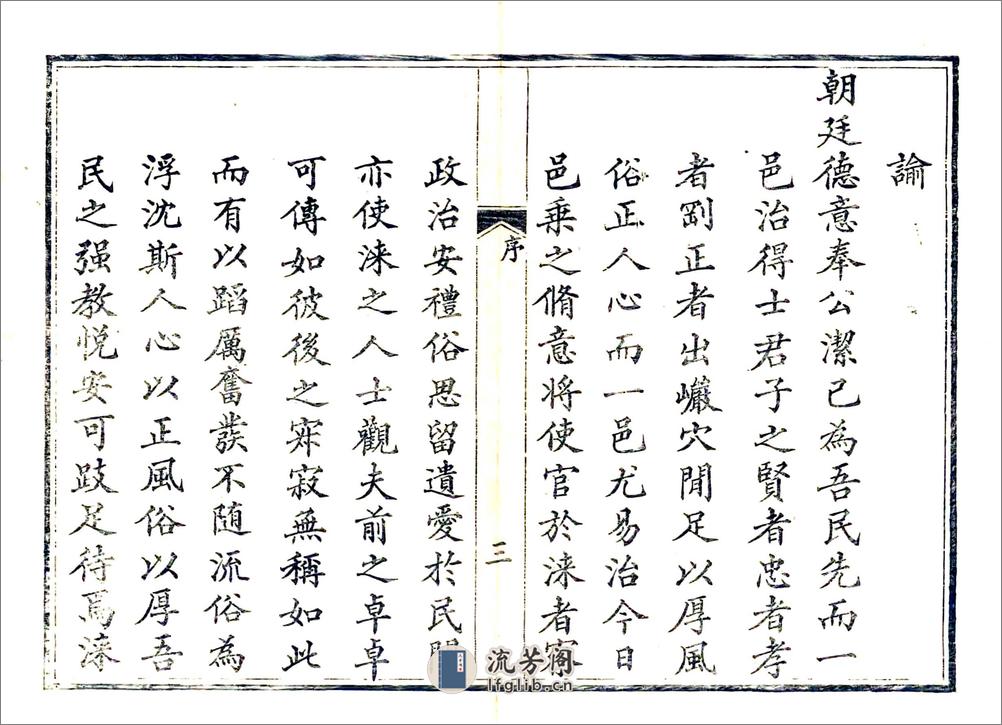 諭
朝廷德意奉公潔己為吾民先而一
邑治得士君子之賢者忠者孝
者劉正者出巗穴聞足以厚風
俗正人心而一邑尤易治今日
邑乗之脩意將使官於淶者
序
三
政治安禮俗思留遺愛於民
亦使淶之人士觀夫前之卓卓
可傳如彼後之寂無稱如此
而有以蹈厲奮發不随流俗為
浮沈斯人心以正風俗以厚吾
民之强教悦安可跂足待焉淶
流芳阁
lfglib.cn